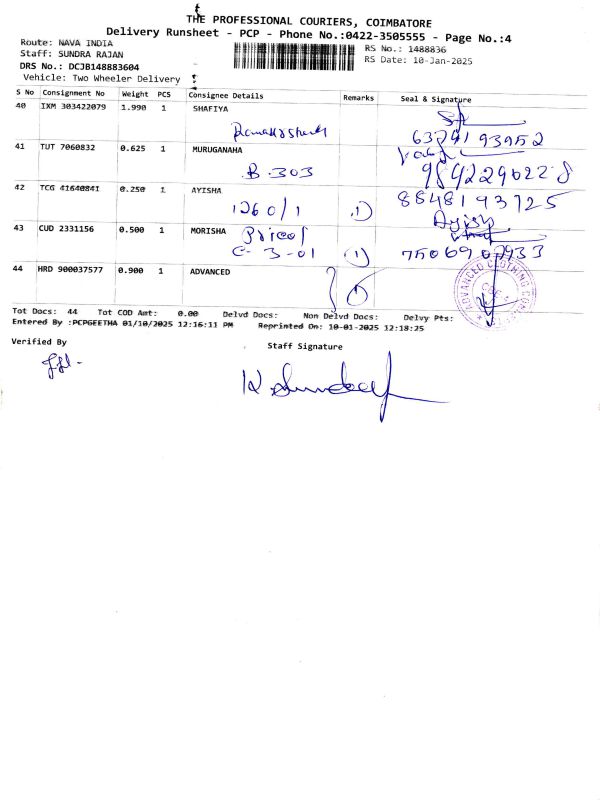 THE PROFESSIONAL COURIERS, COIMBATORE
Delivery Runsheet - PCP - Phone No.:0422-3505555 - Page No.:4
Route: NAVA INDIA
Staff: SUNDRA RAJAN
DRS No.: DCJB148883604
Vehicle: Two Wheeler Delivery
RS No.: 1488836
RS Date: 10-Jan-2025
S No Consignment No Weight PCS Consignee Details Remarks Seal & Signature
40 IXM 303422079 1.990 1 SHAFIYA
41 TUT 7060832 0.625 1 MURUGANAHA
B-303
42 TCG 41640841 0.250 1 AYISHA
1260/1 1 8848193725
43 CUD 2331156 0.500 1 MORISHA Pricol
C-3-01 1
44 HRD 900037577 0.900 1 ADVANCED
1
ADVANCED CLOTHING
Tot Docs: 44 Tot COD Amt: 0.00 Delvd Docs: Non Delvd Docs: Delvy Pts:
Entered By :PCPGEETHA 01/10/2025 12:16:11 PM Reprinted On: 10-01-2025 12:18:25
Verified By
Staff Signature